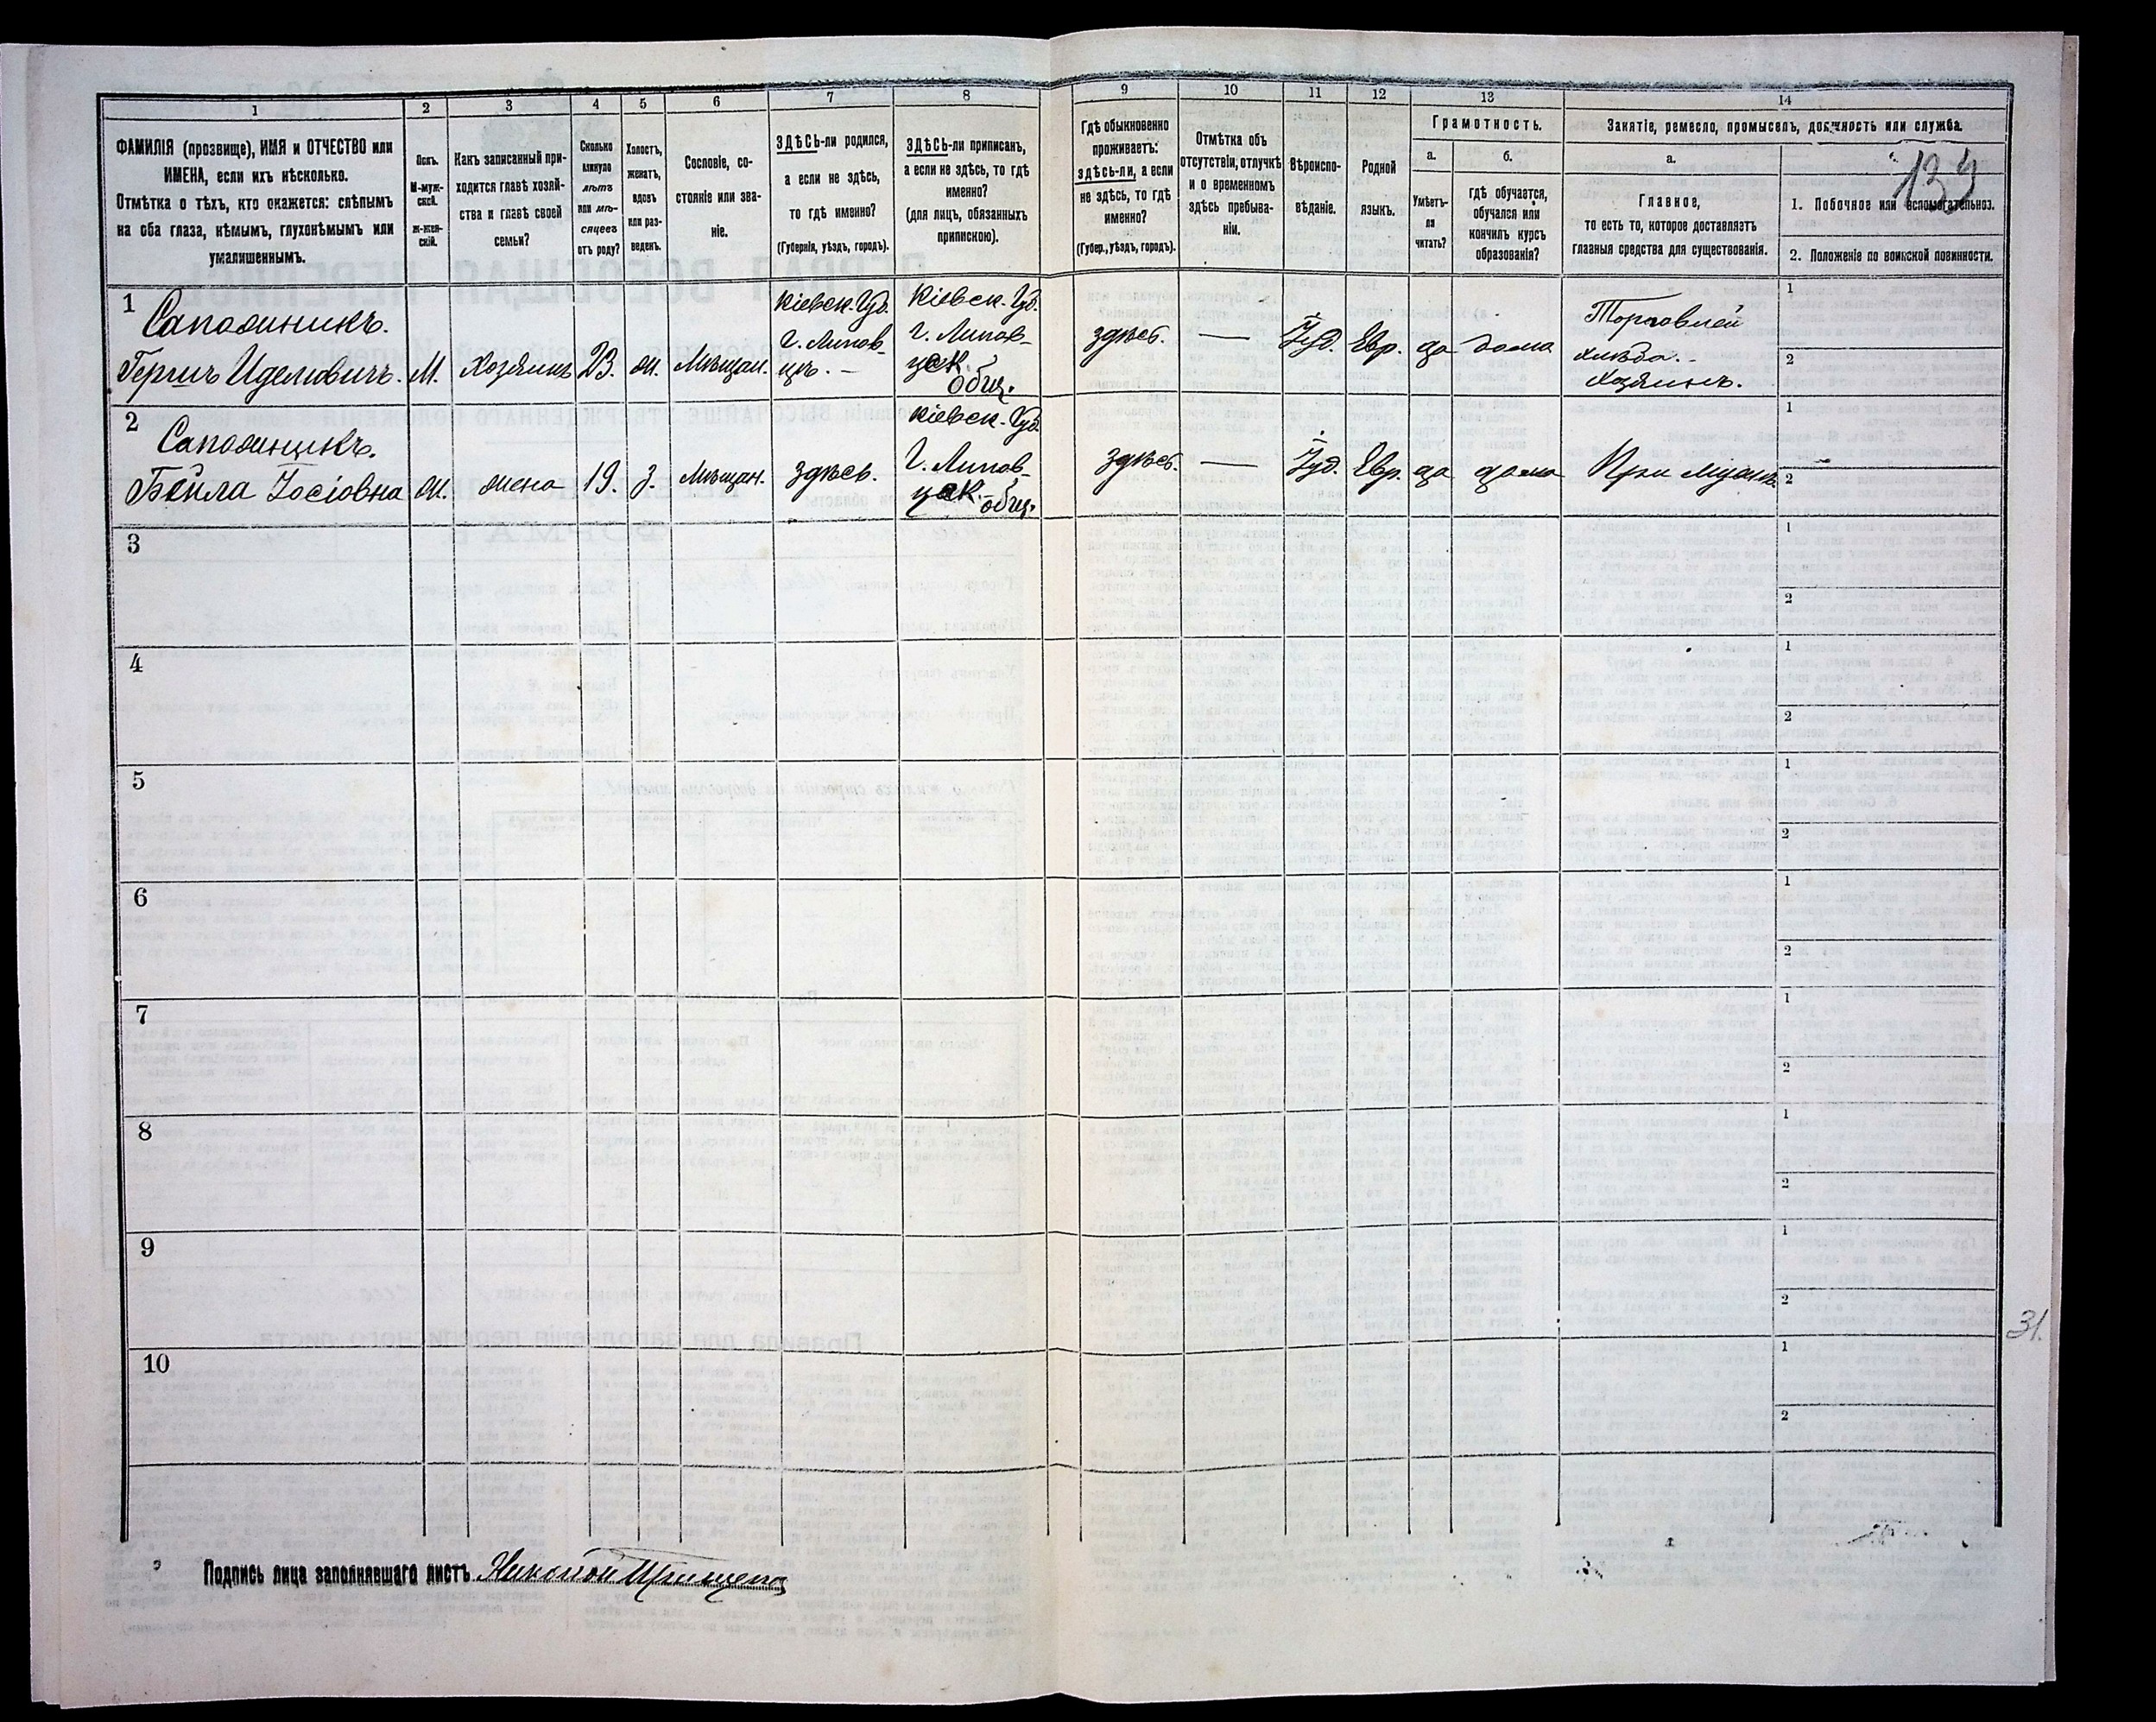 1 2 3 4 5 6 7 8 9 10 11 12 13 14
ФАМИЛІЯ (прозвище), ИМЯ и ОТЧЕСТВО или
ИМЕНА, если ихъ нѣсколько.
Отмѣтка о тѣхъ, кто окажется: слѣпымъ
на оба глаза, нѣмымъ, глухонѣмымъ или
умалишеннымъ.
Полъ.
М-муж-
ской.
Ж-жен-
скій.
Какъ записанный при-
ходится главѣ хозяй-
ства и главѣ своей
семьи?
Сколько
минуло
лѣтъ
или мѣ-
сяцевъ
отъ роду?
Холостъ,
женатъ,
вдовъ
или раз-
веденъ.
Сословіе, со-
стояніе или зва-
ніе.
ЗДѢСЬ-ли родился,
а если не здѣсь,
то гдѣ именно?
(Губернія, уѣздъ, городъ).
ЗДѢСЬ-ли приписанъ,
а если не здѣсь, то гдѣ
именно?
(для лицъ, обязанныхъ
припискою).
Гдѣ обыкновенно
проживаетъ:
здѣсь-ли, а если
не здѣсь, то гдѣ
именно?
(Губер., уѣздъ, городъ).
Отмѣтка объ
отсутствіи, отлучкѣ
и о временномъ
здѣсь пребыва-
ніи.
Вѣроиспо-
вѣданіе.
Родной
языкъ.
Грамотность.
а.
Умѣетъ-
ли
читать?
б.
гдѣ обучается,
обучался или
кончилъ курсъ
образованія?
Занятіе, ремесло, промыселъ, должность или служба.
а.
Главное,
то есть то, которое доставляетъ
главныя средства для существованія.
1. Побочное или вспомогательное.
2. Положеніе по воинской повинности.
1
Саполиникъ.
Гершъ Иделовичъ.
М.
Хозяинъ
23.
ж.
Мѣщан.
Кіевск. Губ.
г. Липов-
цѣ. —
Кіевск. Губ.
г. Липов-
цск.
общ.
здѣсь.
—
Іуд.
Евр.
да
дома
Торговлей
хлѣба. -
Хозяинъ.
1
2
2
Сапожникъ.
Бейла Іосіовна
ж.
жена
19.
З.
Мѣщан.
здѣсь.
Кіевск. Губ.
г. Липов-
цск.
общ.
здѣсь.
—
Іуд.
Евр.
да
дома
При мужѣ
1
2
3
1
2
4
1
2
5
1
2
6
1
2
7
1
2
8
1
2
9
1
2
10
1
2
31.
Подпись лица заполнявшаго листъ